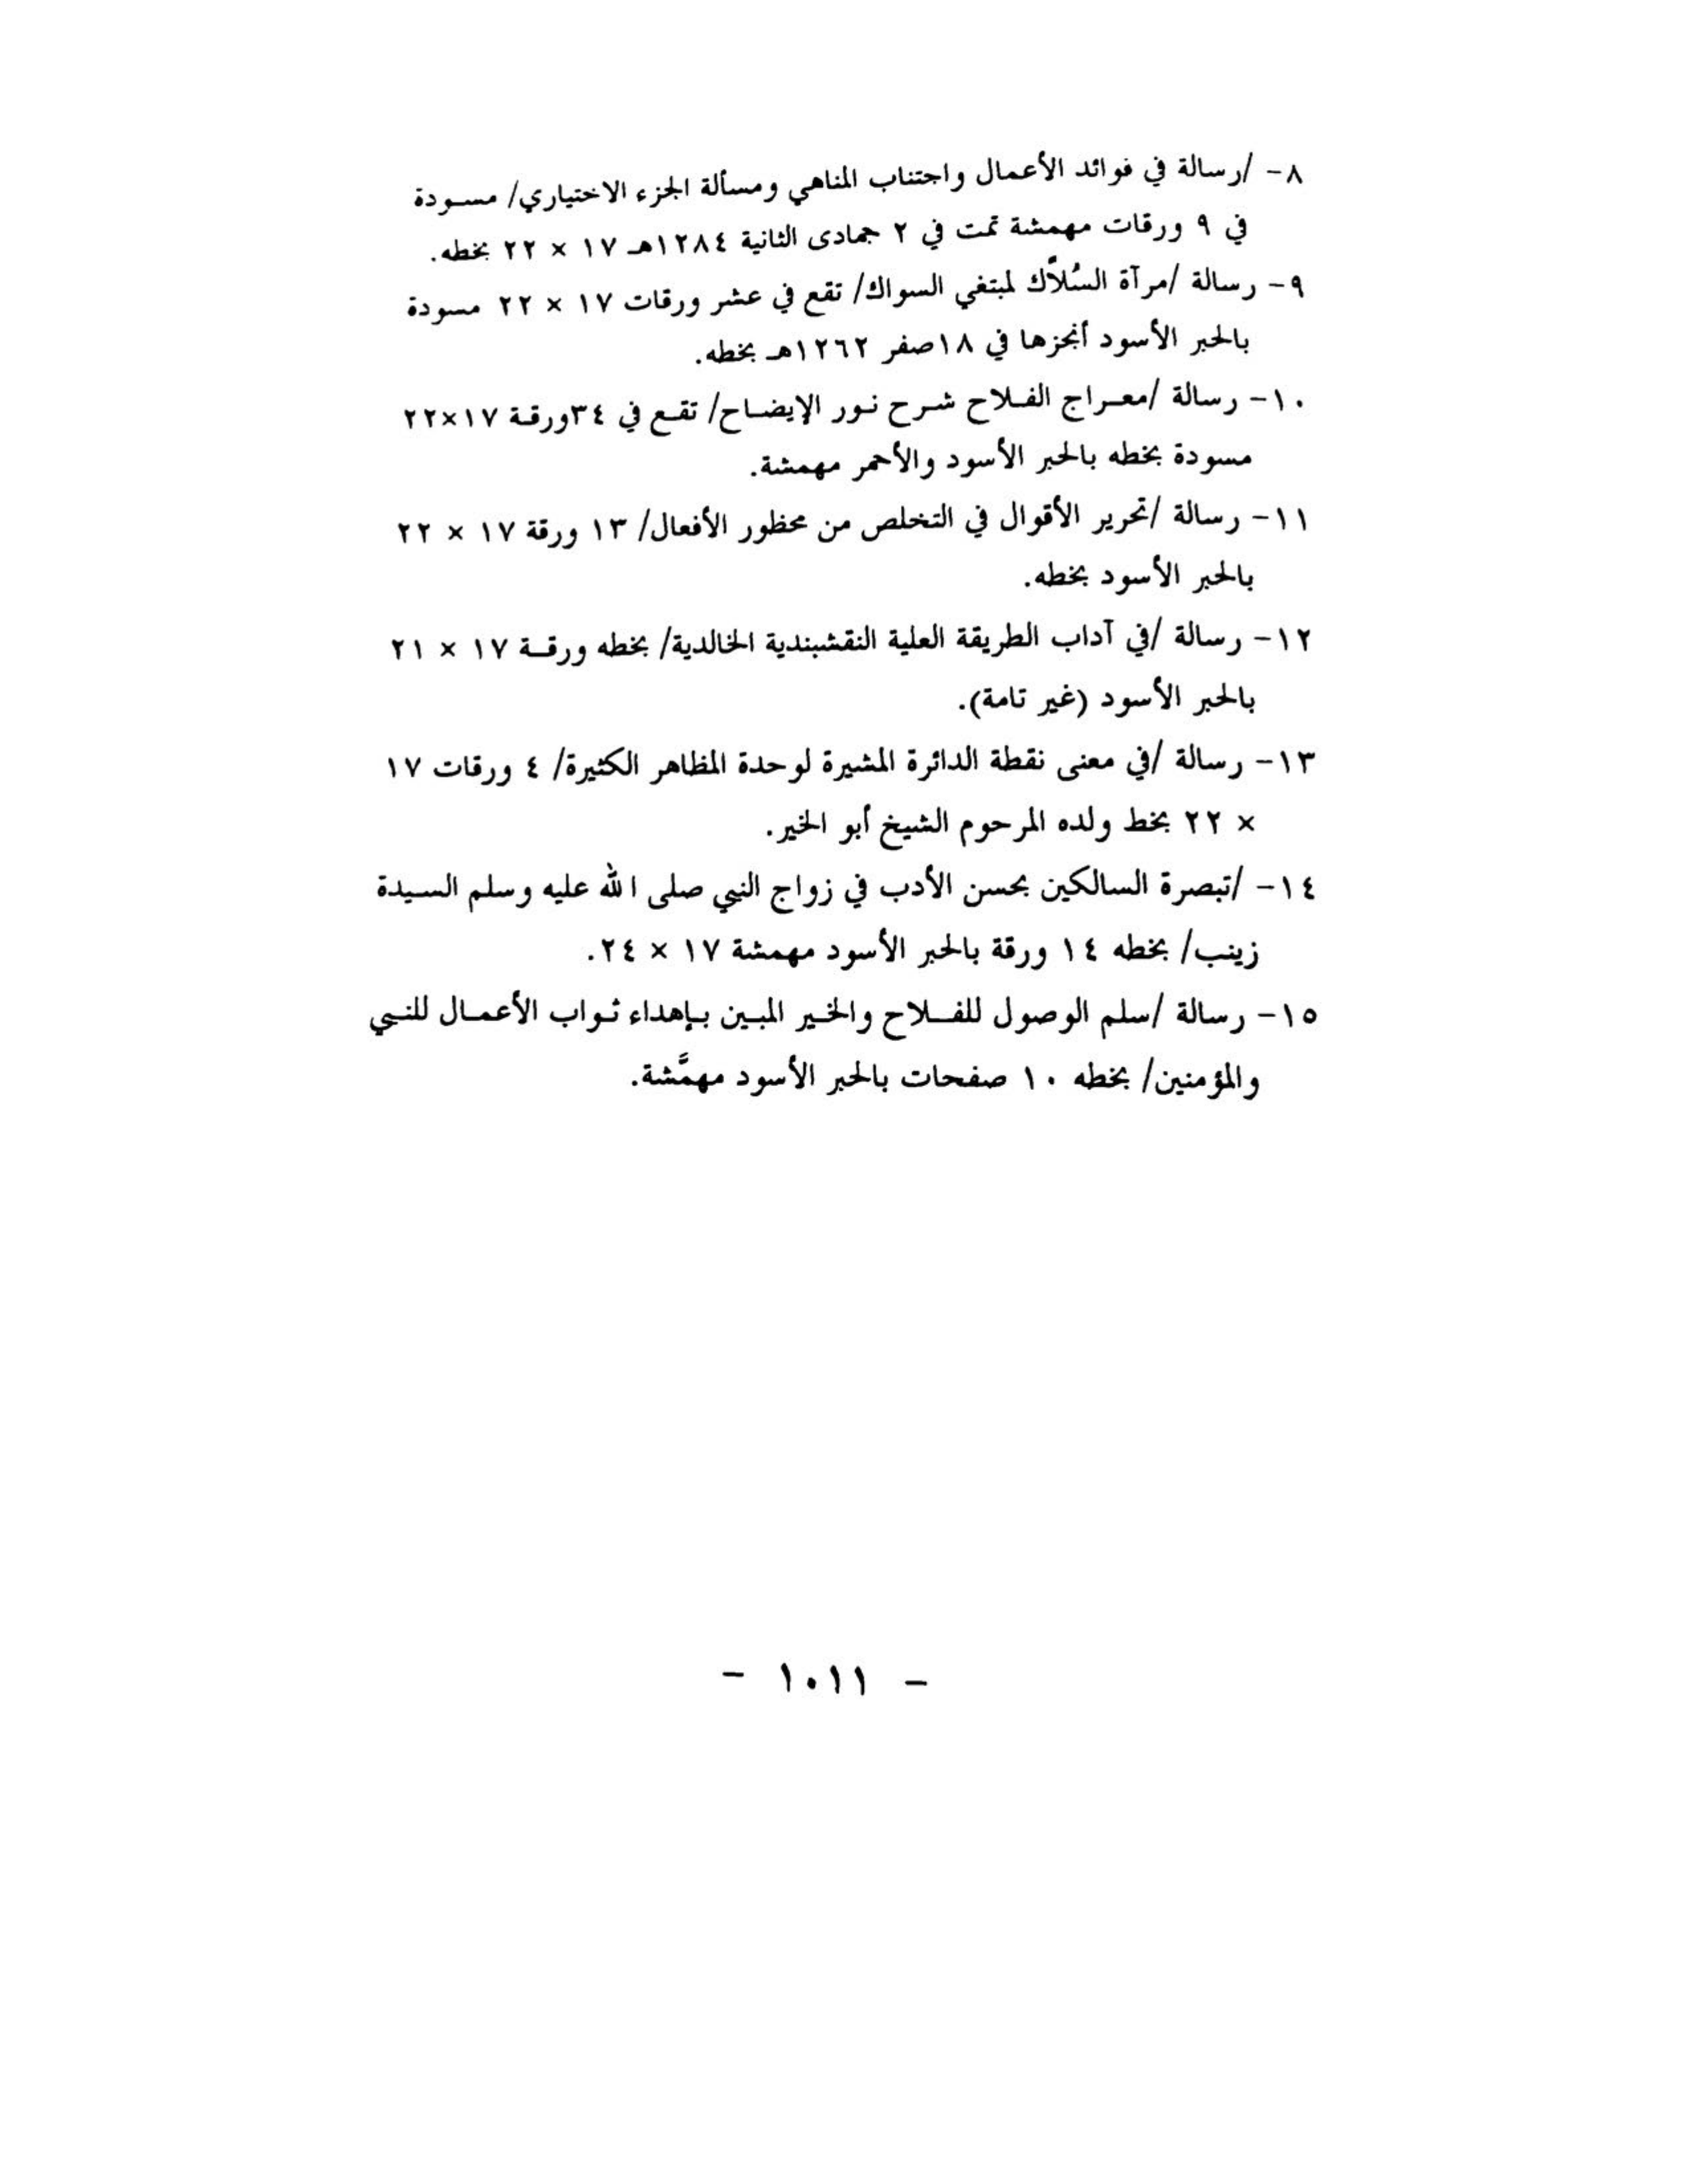 ٨- /رسالة في فوائد الأعمال واجتناب المناهي ومسألة الجزء الاختياري/ مسودة
في ٩ ورقات مهمشة تمت في ٢ جمادى الثانية ١٢٨٤هـ ١٧ × ٢٢ بخطه.
٩- رسالة /مرآة السُلاَّك لمبتغي السواك/ تقع في عشر ورقات ١٧ × ٢٢ مسودة
بالحبر الأسود أنجزها في ١٨صفر ١٢٦٢هـ بخطه.
١٠- رسالة /معراج الفلاح شرح نور الإيضاح/ تقع في ٣٤ورقة ١٧×٢٢
مسودة بخطه بالحبر الأسود والأحمر مهمشة.
١١- رسالة /تحرير الأقوال في التخلص من محظور الأفعال/ ١٣ ورقة ١٧ × ٢٢
بالحبر الأسود بخطه.
١٢- رسالة /في آداب الطريقة العلية النقشبندية الخالدية/ بخطه ورقة ١٧ × ٢١
بالحبر الأسود (غير تامة).
١٣- رسالة /في معنى نقطة الدائرة المشيرة لوحدة المظاهر الكثيرة/ ٤ ورقات ١٧
× ٢٢ بخط ولده المرحوم الشيخ أبو الخير.
١٤- /تبصرة السالكين بحسن الأدب في زواج النبي صلى الله عليه وسلم السيدة
زينب/ بخطه ١٤ ورقة بالحبر الأسود مهمشة ١٧ × ٢٤.
١٥- رسالة /سلم الوصول للفلاح والخير المبين بإهداء ثواب الأعمال للنبي
والمؤمنين/ بخطه ١٠ صفحات بالحبر الأسود مهمَّشة.
- ١٠١١ -